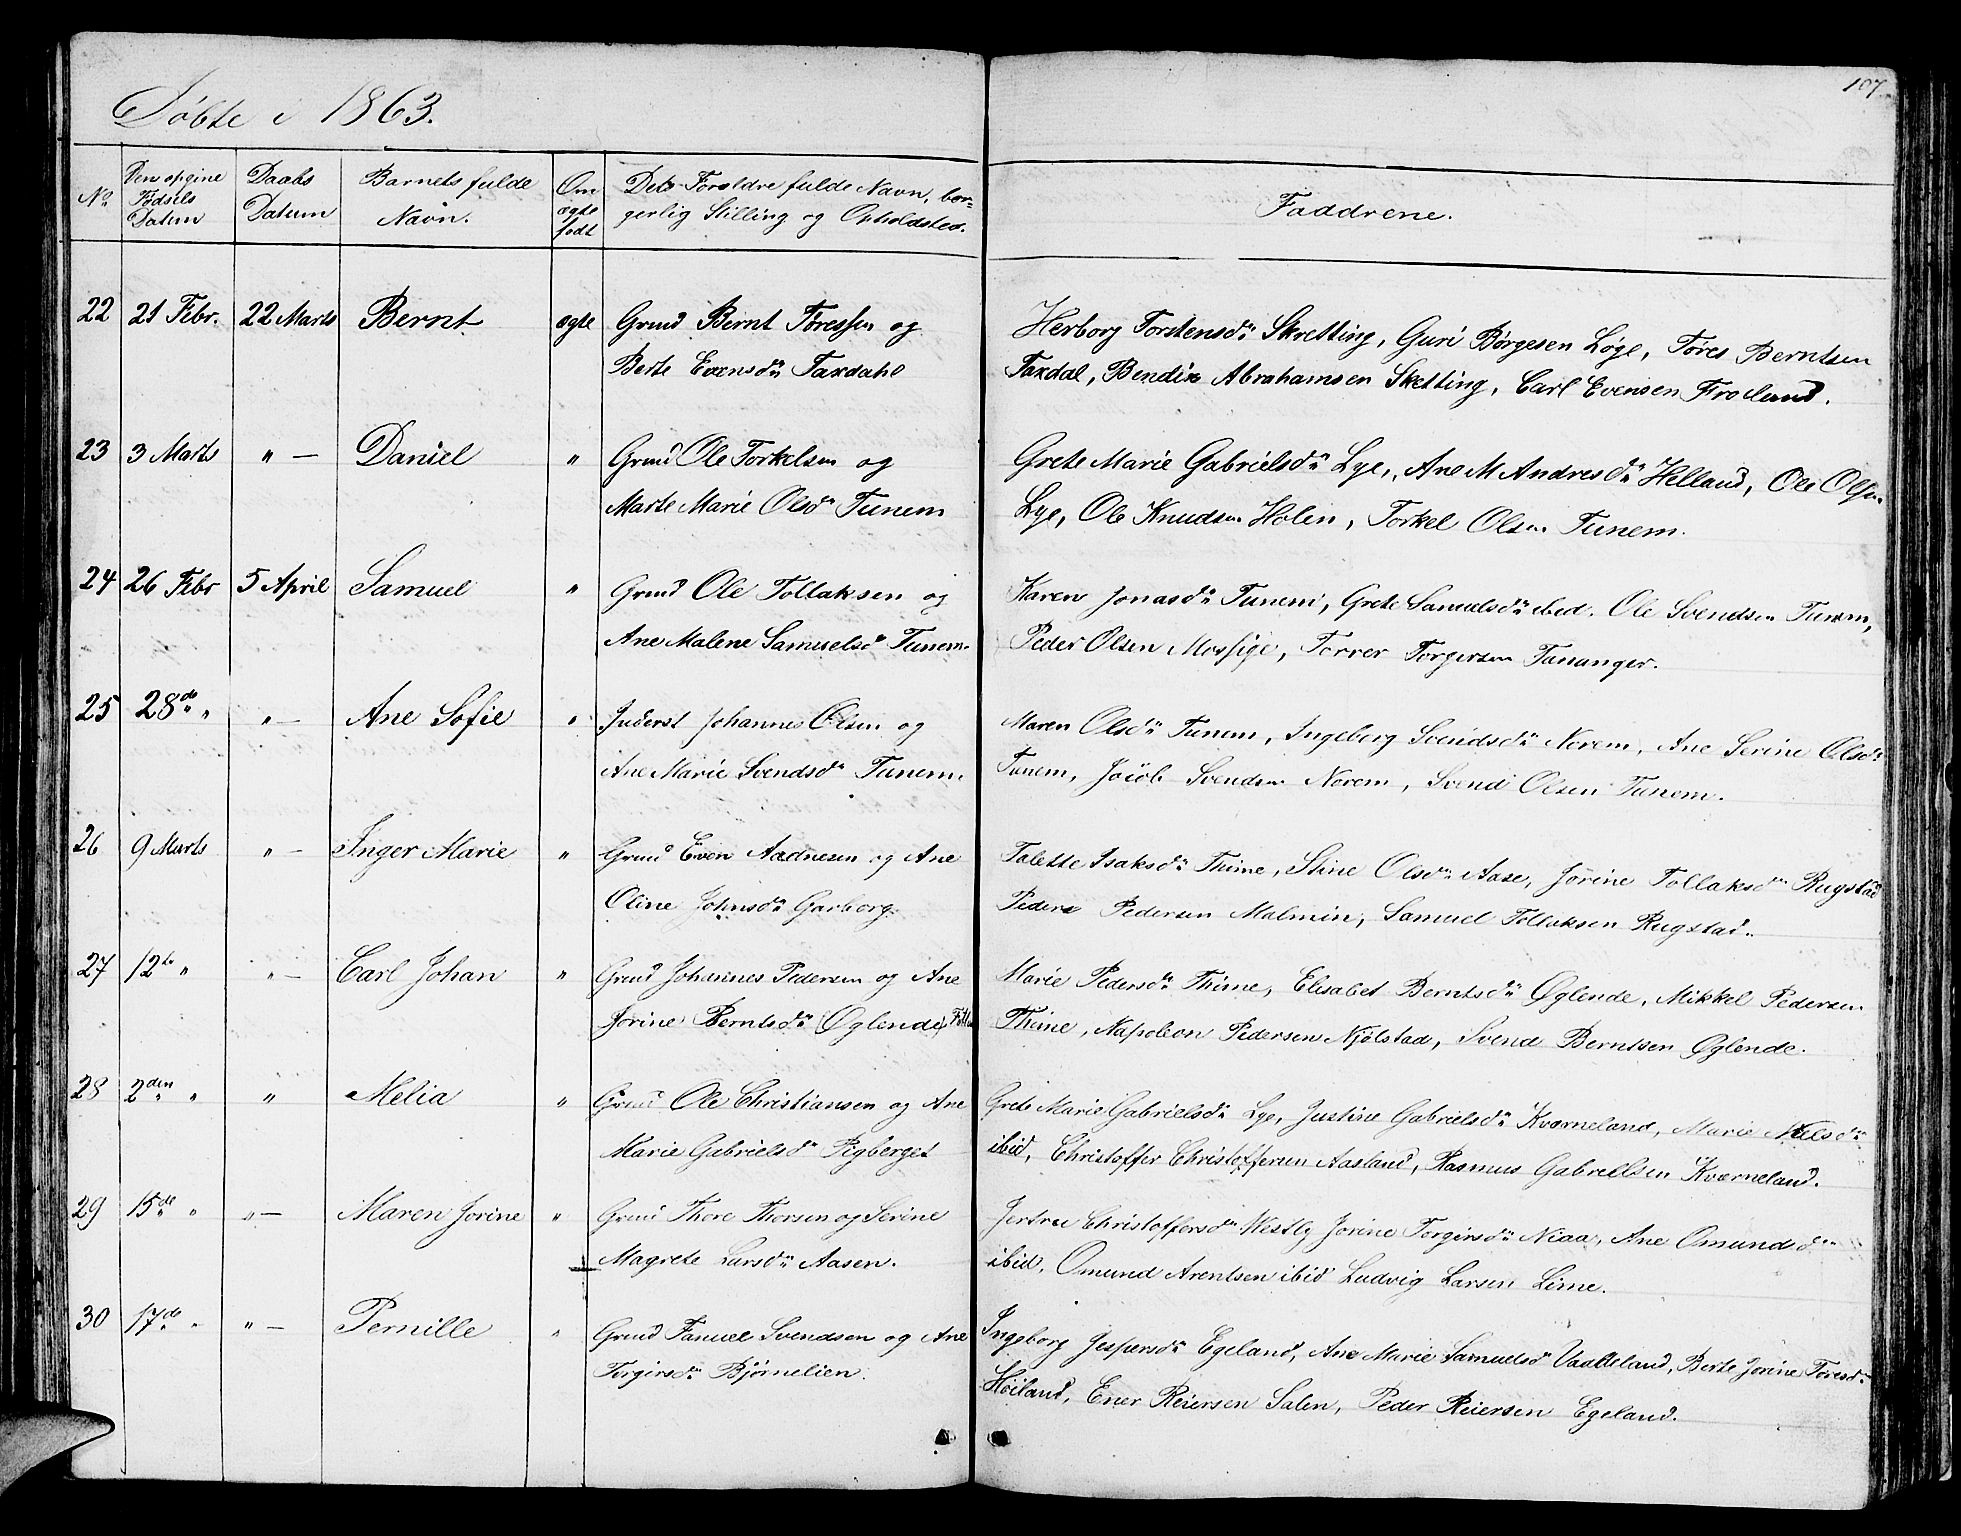 107.
Døbte i 1863.
No
Den opgivne Fødsels Datum
Daabs Datum
Barnets fulde Navn.
Om ægte født
Dets Forældre fulde Navn, borgerlig Stilling og Opholdsted.
Faddrene.
22 21 Febr. 22 Marts Bernt ægte Grmd Bernt Føressen og
Berte Evensdr Taxdahl
Herborg Torstensdr Skretting, Guri Børgesen Løge, Føres Berntsen
Taxdal, Bendix Abrahamsen Sketting, Carl Evensen Froeland.
23 3 Marts " — Daniel " Grmd Ole Torkelsen og
Marte Marie Olsdr Tunem
Grete Marie Gabrielsdr Lye, Ane M Andresdr Helland, Ole Olsen
Lye, Ole Knudsen Holen, Torkel Olsen Tunem.
24 26 Febr 5 April Samuel " Grmd Ole Tollaksen og
Ane Malene Samuelsdr Tunem.
Karen Jonasdr Tunem, Grete Samuelsdr ibid. Ole Svendsen Tunem,
Peder Olsen Mossige, Torrer Torgersen Tananger.
25 28de " " — Ane Sofie " Inderst Johannes Olsen og
Ane Marie Svendsdr Tunem.
Maren Olsdr Tunem, Ingeborg Svendsdr Norem, Ane Serine Olsdr
Tunem, Jacob Svendsen Norem, Svend Olsen Tunem.
26 9 Marts " — Inger Marie " Grmd Even Aadnesen og Ane
Oline Johnsdr Garborg.
Talette Isaksdr Thime, Stine Olsdr Aase, Jorine Tollaksdr Rugstad
Peder Pedersen Malmin, Samuel Tollaksen Rugstad.
27 12te " " — Carl Johan " Grmd Johannes Pedersen og Ane
Jorine Berntsdr Øglende
Marie Pedersdr Thime, Elisabet Berntsdr Øglende, Mikkel Pedersen
Thime, Napoleon Pedersen Njølstad, Svend Berntsen Øglende.
28 2den " " Melia " Grmd Ole Christiansen og Ane
Marie Gabrielsdr Rigberget
Grete Marie Gabrielsdr Lye, Justine Gabrielsdr Kværneland, Marie Nilsdr
ibid, Christoffer Christoffersen Aasland, Rasmus Gabrielsen Kværneland.
29 15de " " — Maren Jorine " Grmd Thore Thorsen og Serine
Magrete Larsdr Aasen.
Jertru Christoffersdr Westly Jorine Torgirsdr Niaa, Ane Omundsdr
ibid, Omund Arentsen ibid Ludvig Larsen Lime.
30 17de " " — Pernille " Grmd Fanuel Svendsen og Ane
Torgirsdr Bjørnelien.
Ingeborg Jespersdr Egeland, Ane Marie Samuelsd Vadleland, Berte Jorine Toresdr
Høiland, Ener Reiersen Salen, Peder Reiersen Egeland.